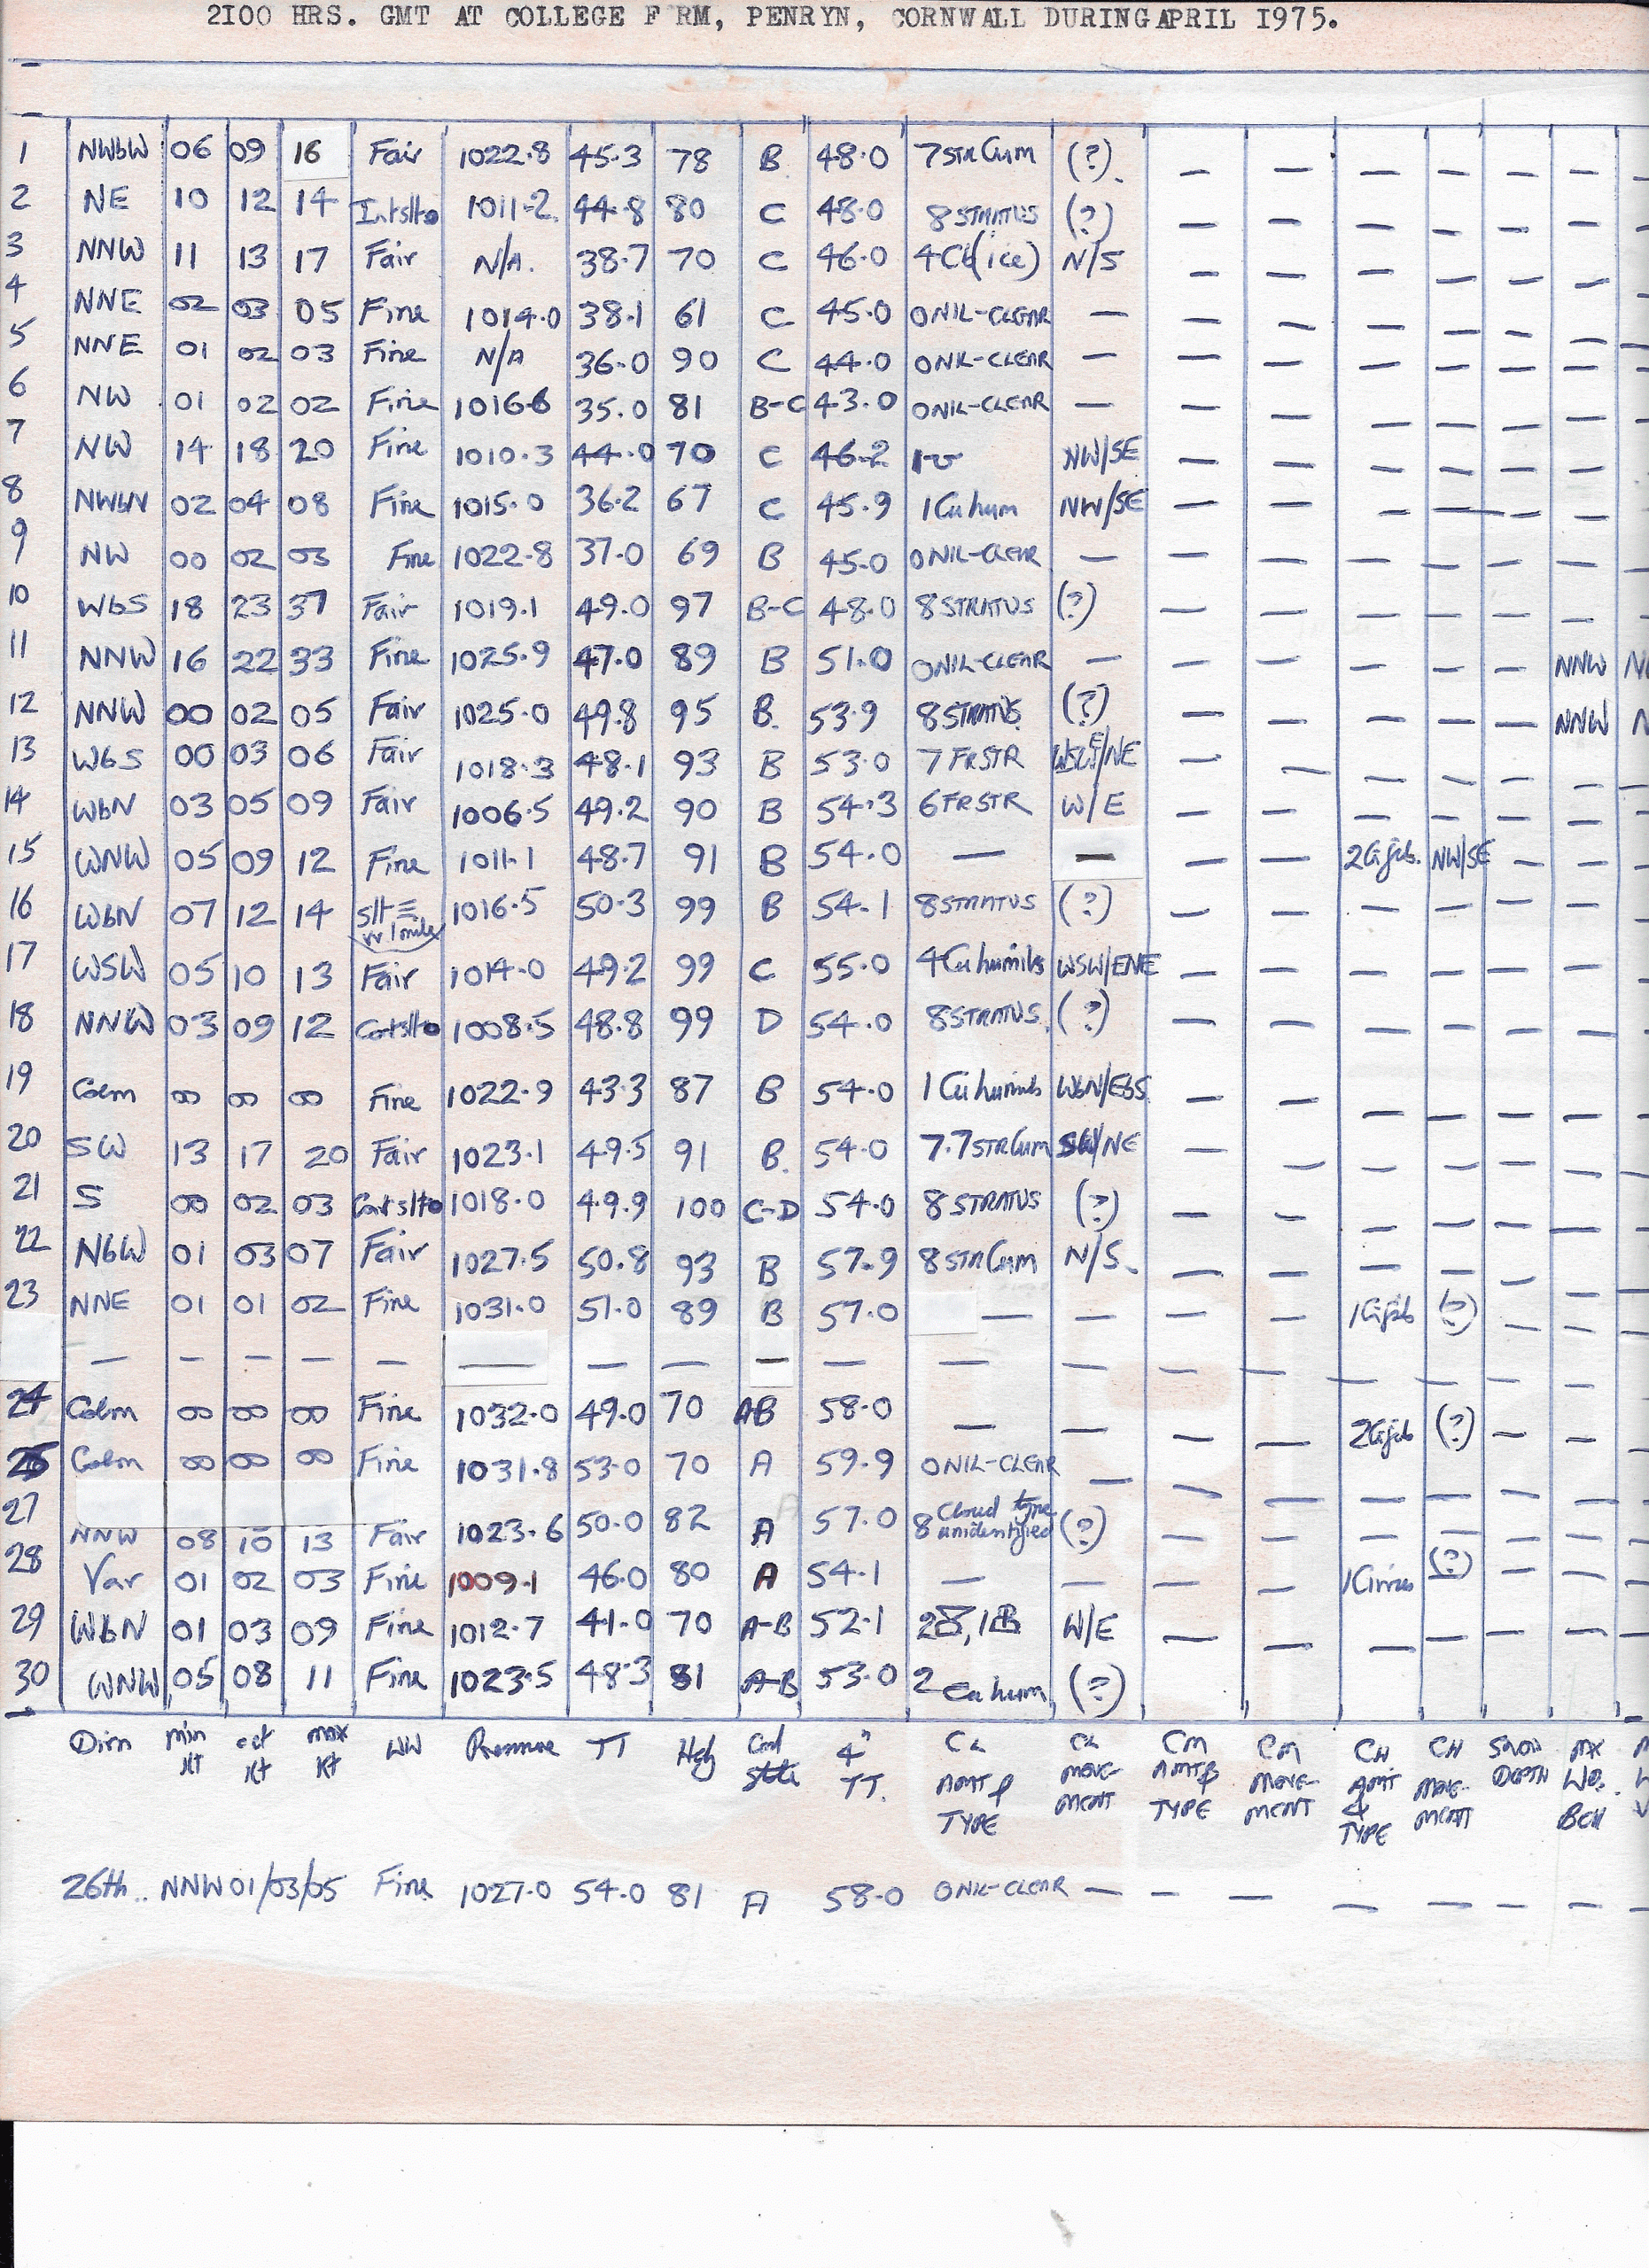 2I00 HRS. GMT AT COLLEGE F RM, PENRYN, CORNWALL DURINGAPRIL I975.
1 NWbW 06 09 16 Fair 1022.8 45.3 78 B 48.0 7 STR Cum (?) — — — — — —
2 NE 10 12 14 Intslto 1011.2 44.8 80 C 48.0 8 STRATUS (?) — — — — — —
3 NNW 11 13 17 Fair N/A. 38.7 70 C 46.0 4Cb(ice) N/S — — — — — —
4 NNE 02 03 05 Fine 1014.0 38.1 61 C 45.0 0NIL-CLEAR — — — — — — —
5 NNE 01 02 03 Fine N/A 36.0 90 C 44.0 0NIL-CLEAR — — — — — — —
6 NW 01 02 02 Fine 1016.6 35.0 81 B-C 43.0 0NIL-CLEAR — — — — — — —
7 NW 14 18 20 Fine 1010.3 44.0 70 C 46.2 1 NW/SE — — — — — —
8 NWbN 02 04 08 Fine 1015.0 36.2 67 C 45.9 1Cu hum NW/SE — — — — — —
9 NW 00 02 03 Fine 1022.8 37.0 69 B 45.0 0NIL-CLEAR — — — — — — —
10 WbS 18 23 37 Fair 1019.1 49.0 97 B-C 48.0 8 STRATUS (?) — — — — — —
11 NNW 16 22 33 Fine 1025.9 47.0 89 B 51.0 0NIL-CLEAR — — — — — — NNW
12 NNW 00 02 05 Fair 1025.0 49.8 95 B. 53.9 8 STRATUS (?) — — — — — NNW
13 WbS 00 03 06 Fair 1018.3 48.1 93 B 53.0 7 FRSTR /NE — — — — — —
14 WbN 03 05 09 Fair 1006.5 49.2 90 B 54.3 6 FRSTR W/E — — — — — —
15 WNW 05 09 12 Fine 1011.1 48.7 91 B 54.0 — — — — 2Ci fib. NW/SE — —
16 WbN 07 12 14 slt ≡ vv 1 mile 1016.5 50.3 99 B 54.1 8 STRATUS (?) — — — — — —
17 WSW 05 10 13 Fair 1014.0 49.2 99 C 55.0 4Cu humilis WSW/ENE — — — — — —
18 NNW 03 09 12 Contslto 1008.5 48.8 99 D 54.0 8STRATUS (?) — — — — — —
19 Calm 00 00 00 Fine 1022.9 43.3 87 B 54.0 1 Cu humilis WbN/EbS — — — — — —
20 SW 13 17 20 Fair 1023.1 49.5 91 B. 54.0 7.7 STRCum SW/NE — — — — — —
21 S 00 02 03 Contslto 1018.0 49.9 100 C-D 54.0 8 STRATUS (?) — — — — — —
22 NbW 01 03 07 Fair 1027.5 50.8 93 B 57.9 8 STR Cum N/S. — — — — — —
23 NNE 01 01 02 Fine 1031.0 51.0 89 B 57.0 — — — — 1Ci fib (?) — —
— — — — — — — — — — — — — — — — — —
24 Calm 00 00 00 Fine 1032.0 49.0 70 AB 58.0 — — — — 2Ci fib (?) — —
25 Calm 00 00 00 Fine 1031.8 53.0 70 A 59.9 0NIL-CLEAR — — — — — — —
27 NNW 08 10 13 Fair 1023.6 50.0 82 A 57.0 8 Cloud type unidentified (?) — — — — — —
28 Var 01 02 03 Fine 1009.1 46.0 80 A 54.1 — — — — 1Cirrus (?) — —
29 WbN 01 03 09 Fine 1012.7 41.0 70 A-B 52.1 W/E — — — — — —
30 WNW 05 08 11 Fine 1023.5 48.3 81 A-B 53.0 2 Cu hum (?)
Dirn min Kt act Kt max Kt WW Pressure TT Hdy Gnd State 4" TT. CL AMT & TYPE CL MOVE-MENT CM AMT & TYPE CM MOVE-MENT CH AMT & TYPE CH MOVE-MENT SNOW DEPTH MX WD. BCH
26th.. NNW 01/03/05 Fine 1027.0 54.0 81 A 58.0 0NIL-CLEAR — — — — — — —